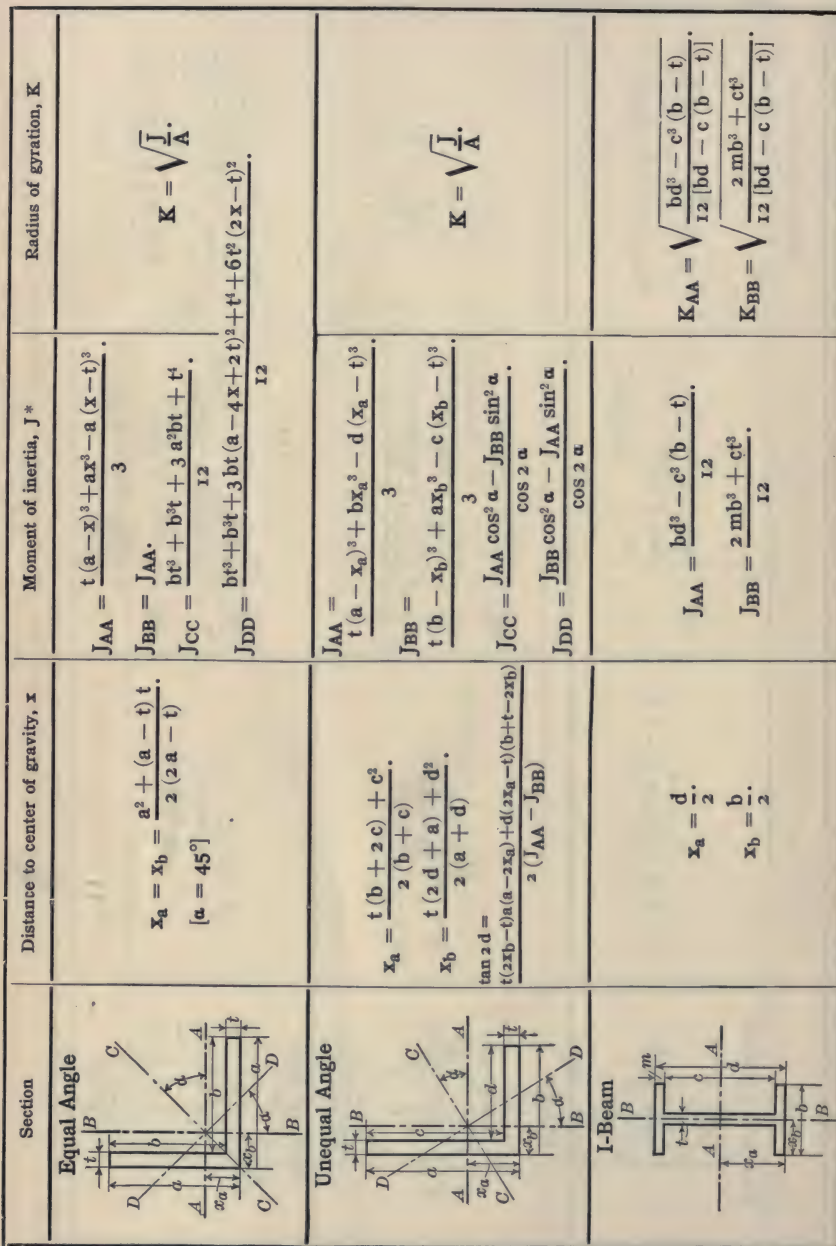 Section Distance to center of gravity, x Moment of inertia, J * Radius of gyration, K
Equal Angle
B A C D t b a d b a t a x_b x_a d A C D B
x_a = x_b = (a² + (a − t) t) / (2 (2 a − t)).
[α = 45°]
J_AA = (t (a−x)³+ax³−a (x−t)³) / 3.
J_BB = J_AA.
J_CC = (bt³ + b³t + 3 a²bt + t⁴) / 12.
J_DD = (bt³+b³t+3 bt (a−4x+2t)²+t⁴+6t² (2x−t)²) / 12.
K = √(J/A).
Unequal Angle
B A C D t c a d d b t x_b x_a d A C D B
x_a = (t (b + 2 c) + c²) / (2 (b + c)).
x_b = (t (2 d + a) + d²) / (2 (a + d)).
tan 2 d =
(t(2x_b−t)a(a−2x_a)+d(2x_a−t)(b+t−2x_b)) / (2 (J_AA − J_BB))
J_AA =
(t (a − x_a)³ + bx_a³ − d (x_a − t)³) / 3.
J_BB =
(t (b − x_b)³ + ax_b³ − c (x_b − t)³) / 3.
J_CC = (J_AA cos² α − J_BB sin² α) / cos 2 α.
J_DD = (J_BB cos² α − J_AA sin² α) / cos 2 α.
K = √(J/A).
I-Beam
B A m c d t b x_b x_a A B
x_a = d/2.
x_b = b/2.
J_AA = (bd³ − c³ (b − t)) / 12.
J_BB = (2 mb³ + ct³) / 12.
K_AA = √((bd³ − c³ (b − t)) / (12 [bd − c (b − t)])).
K_BB = √((2 mb³ + ct³) / (12 [bd − c (b − t)])).